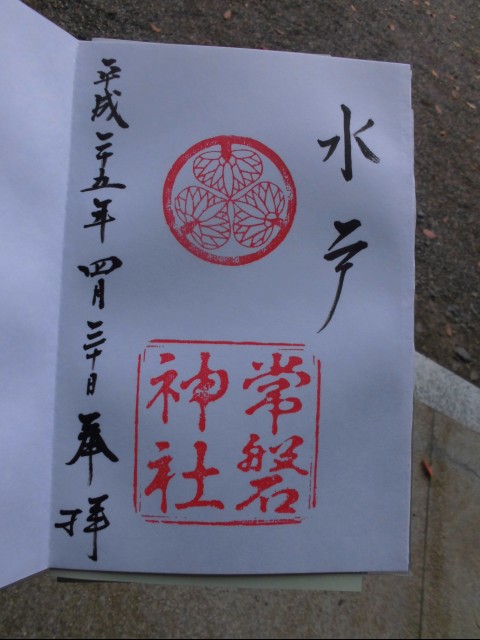 水戸
常磐
神社
平成二十五年四月三十日奉拝